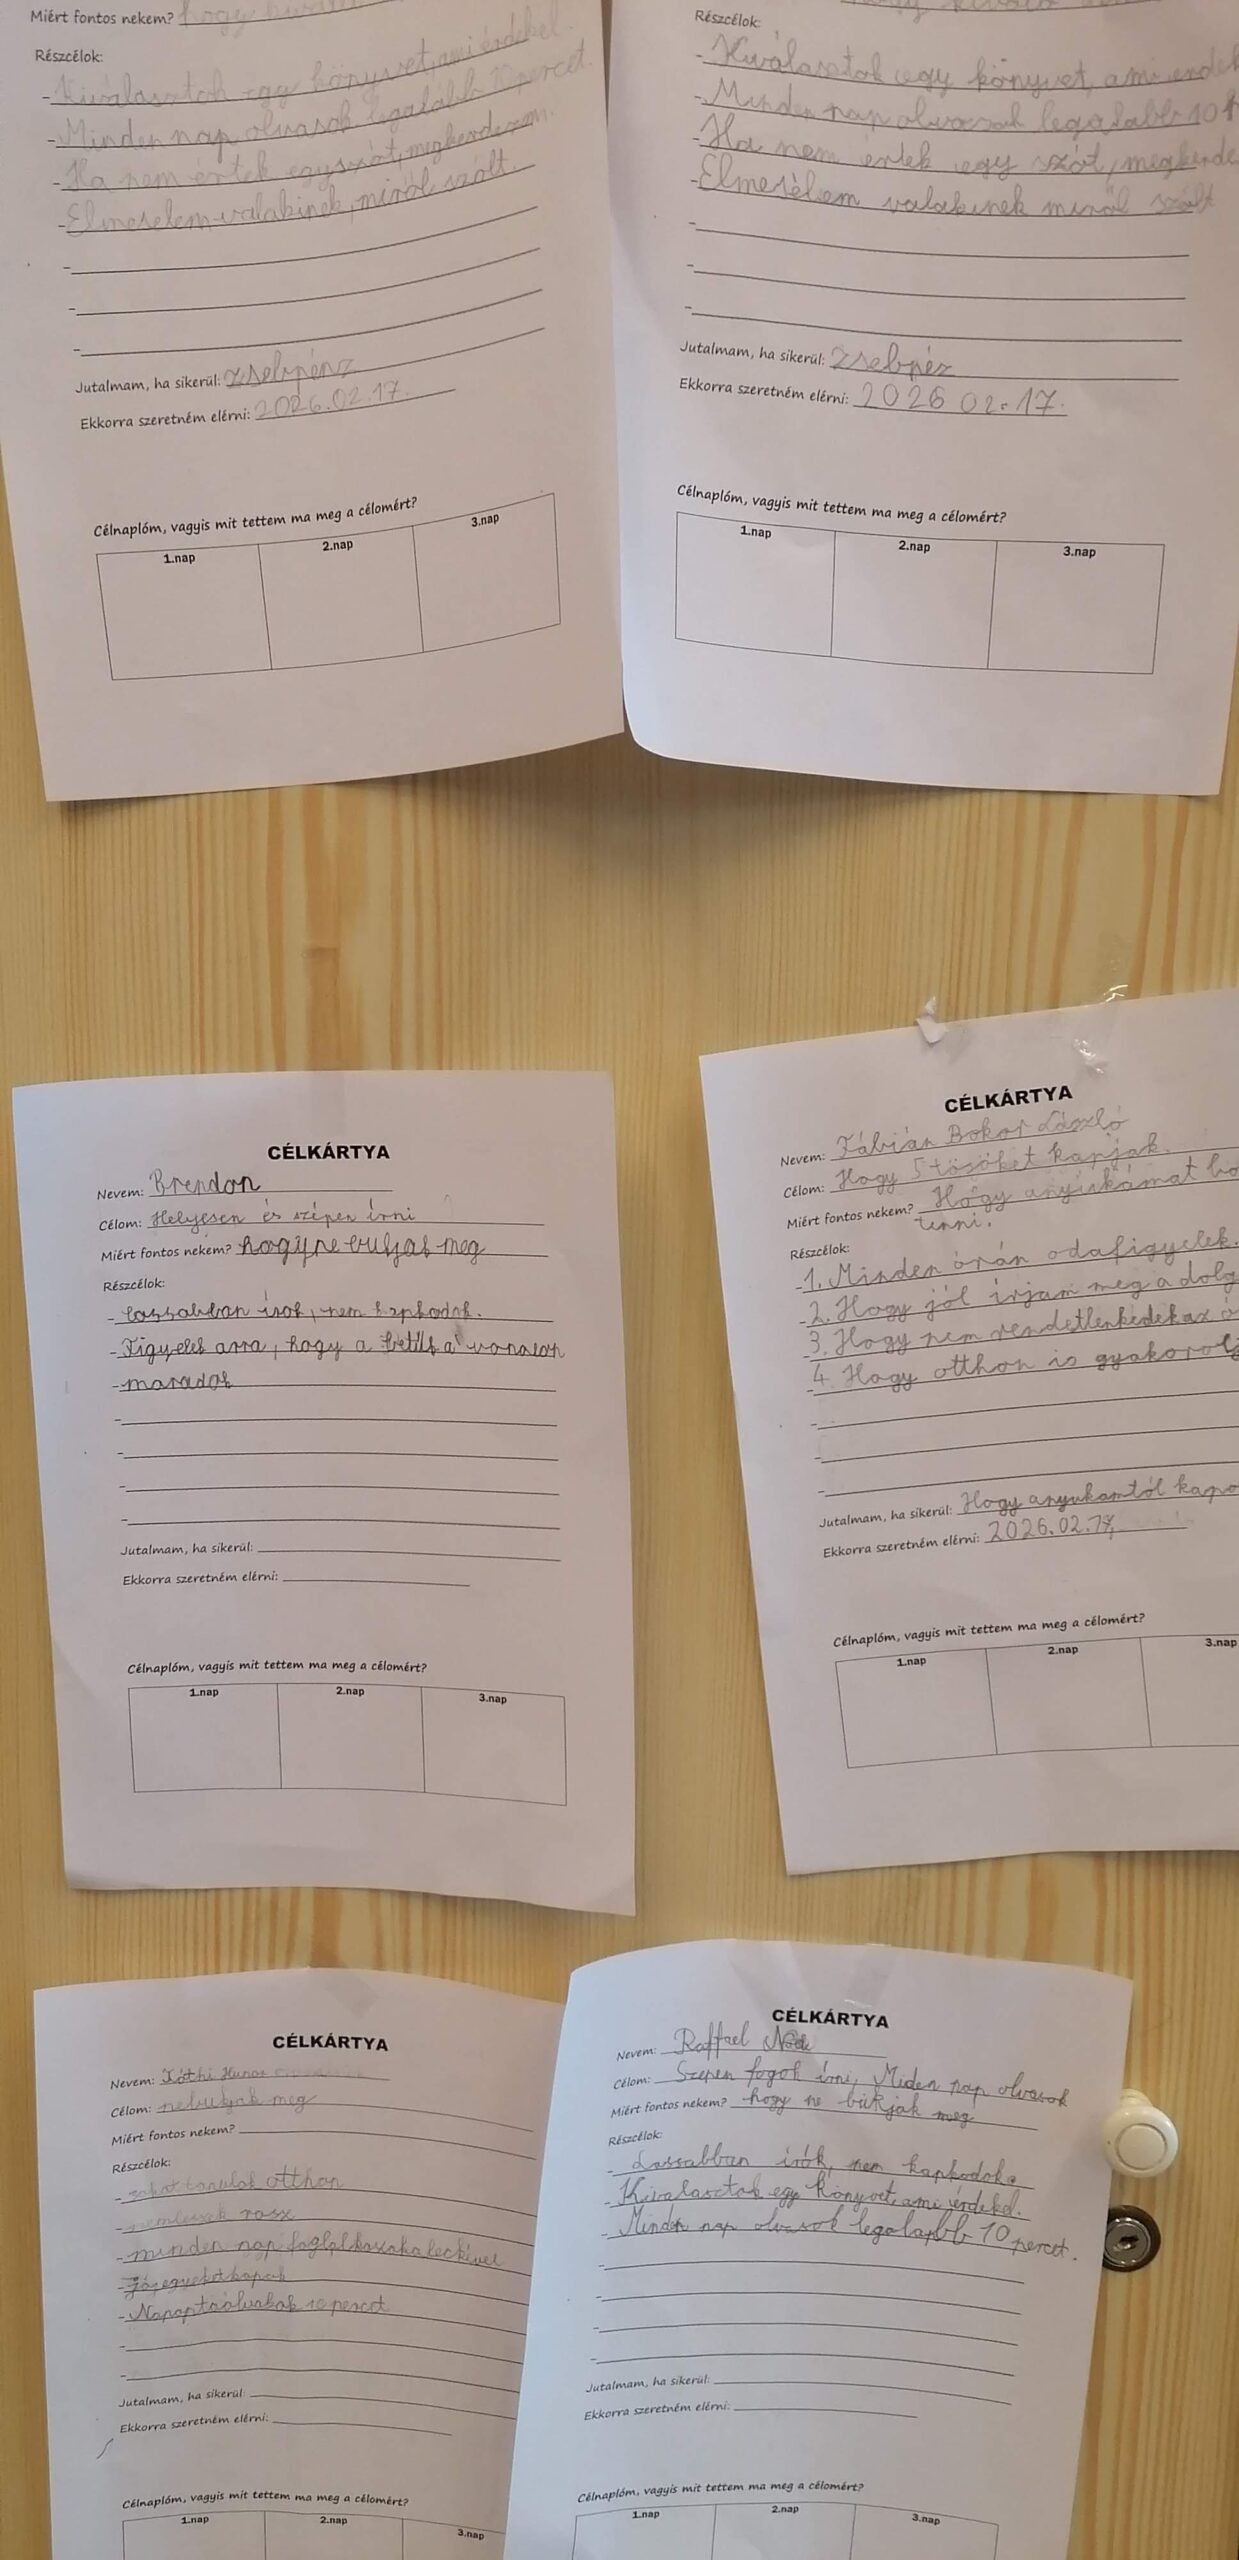 Miért fontos nekem? hogy
Részcélok:
- Kiválasztok egy könyvet, ami érdekel.
- Minden nap olvasok legalább 10 percet.
- Ha nem értek egy szót, megkérdezem.
- Elmeselem valakinek, miről szólt.
-
-
-
Jutalmam, ha sikerül: zsebpénz
Ekkorra szeretném elérni: 2026.02.17.
Célnaplóm, vagyis mit tettem ma meg a célomért?
1.nap 2.nap 3.nap
Részcélok:
- Kiválasztok egy könyvet, ami érdek
- Minden nap olvasok legalabb 10
- Ha nem értek egy szót, megkérde
- Elmesélem valakinek miről szólt
-
-
-
Jutalmam, ha sikerül: zsebpéz
Ekkorra szeretném elérni: 2026 02.17.
Célnaplóm, vagyis mit tettem ma meg a célomért?
1.nap 2.nap 3.nap
CÉLKÁRTYA
Nevem: Brendon
Célom: Helyesen és szépen írni
Miért fontos nekem? hogy ne bukjak meg
Részcélok:
- Lassabban írok, nem kapkodok.
- Figyelek arra, hogy a betűk a vonalon
- maradok
-
-
-
-
Jutalmam, ha sikerül:
Ekkorra szeretném elérni:
Célnaplóm, vagyis mit tettem ma meg a célomért?
1.nap 2.nap 3.nap
CÉLKÁRTYA
Nevem: Fábián Bokor László
Célom: Hogy 5 tösöket kapjak.
Miért fontos nekem? Hogy anyukámat bo
tenni.
Részcélok:
- 1. Minden órán odafigyelek.
- 2. Hogy jól írjam meg a dolg
- 3. Hogy nem rendetlenkedek az ó
- 4. Hogy otthon is gyakorolj
-
-
-
Jutalmam, ha sikerül: Hogy anyukamtól kapo
Ekkorra szeretném elérni: 2026.02.17.
Célnaplóm, vagyis mit tettem ma meg a célomért?
1.nap 2.nap 3.nap
CÉLKÁRTYA
Nevem: Hunor
Célom: nebukjak meg
Miért fontos nekem?
Részcélok:
- sokat tanulok otthon
- nemleszek rosz
- minden nap foglalkozok a leckével
- jó jegyeket kapok
- 10 percet
-
-
Jutalmam, ha sikerül:
Ekkorra szeretném elérni:
Célnaplóm, vagyis mit tettem ma meg a célomért?
1.nap 2.nap 3.nap
CÉLKÁRTYA
Nevem: Raffael
Célom: Szepen fogok írni, Miden nap olvasok
Miért fontos nekem? hogy ne bukjak meg
Részcélok:
- Lassabban írók, nem kapkodok.
- Kivalasztok egy könyvet, ami érdekel.
- Minden nap olvasok legalabb 10 percet.
-
-
-
-
Jutalmam, ha sikerül:
Ekkorra szeretném elérni:
Célnaplóm, vagyis mit tettem ma meg a célomért?
1.nap 2.nap 3.nap